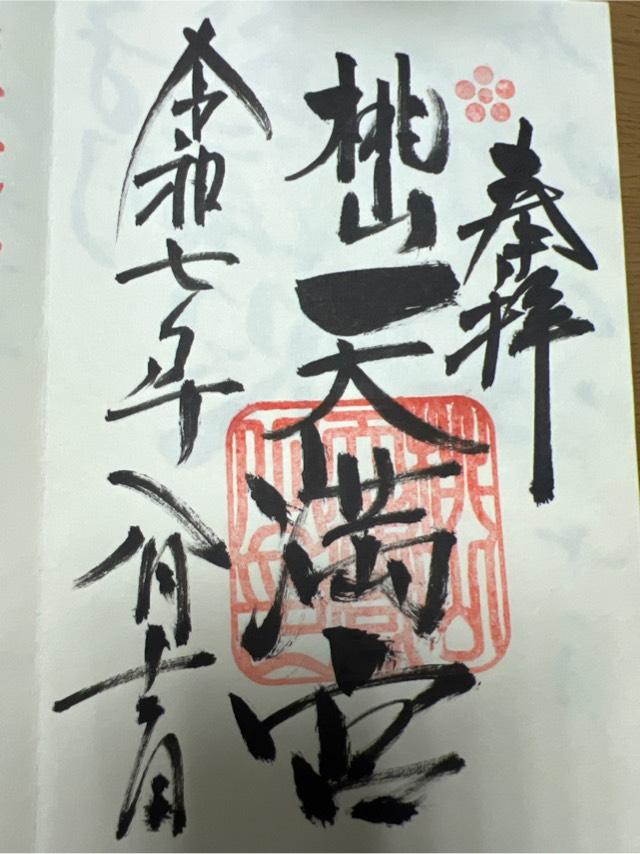 奉拝
桃山天満宮
令和七年八月十日